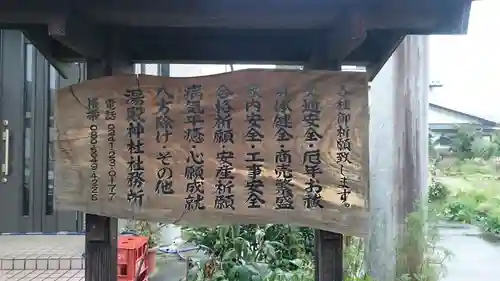 各種御祈願致します。
交通安全・厄年お祓
身体健全・商売繁盛
家内安全・工事安全
合格祈願・安産祈願
病気平癒・心願成就
八方除け・その他
湯殿神社社務所
電話
携帯